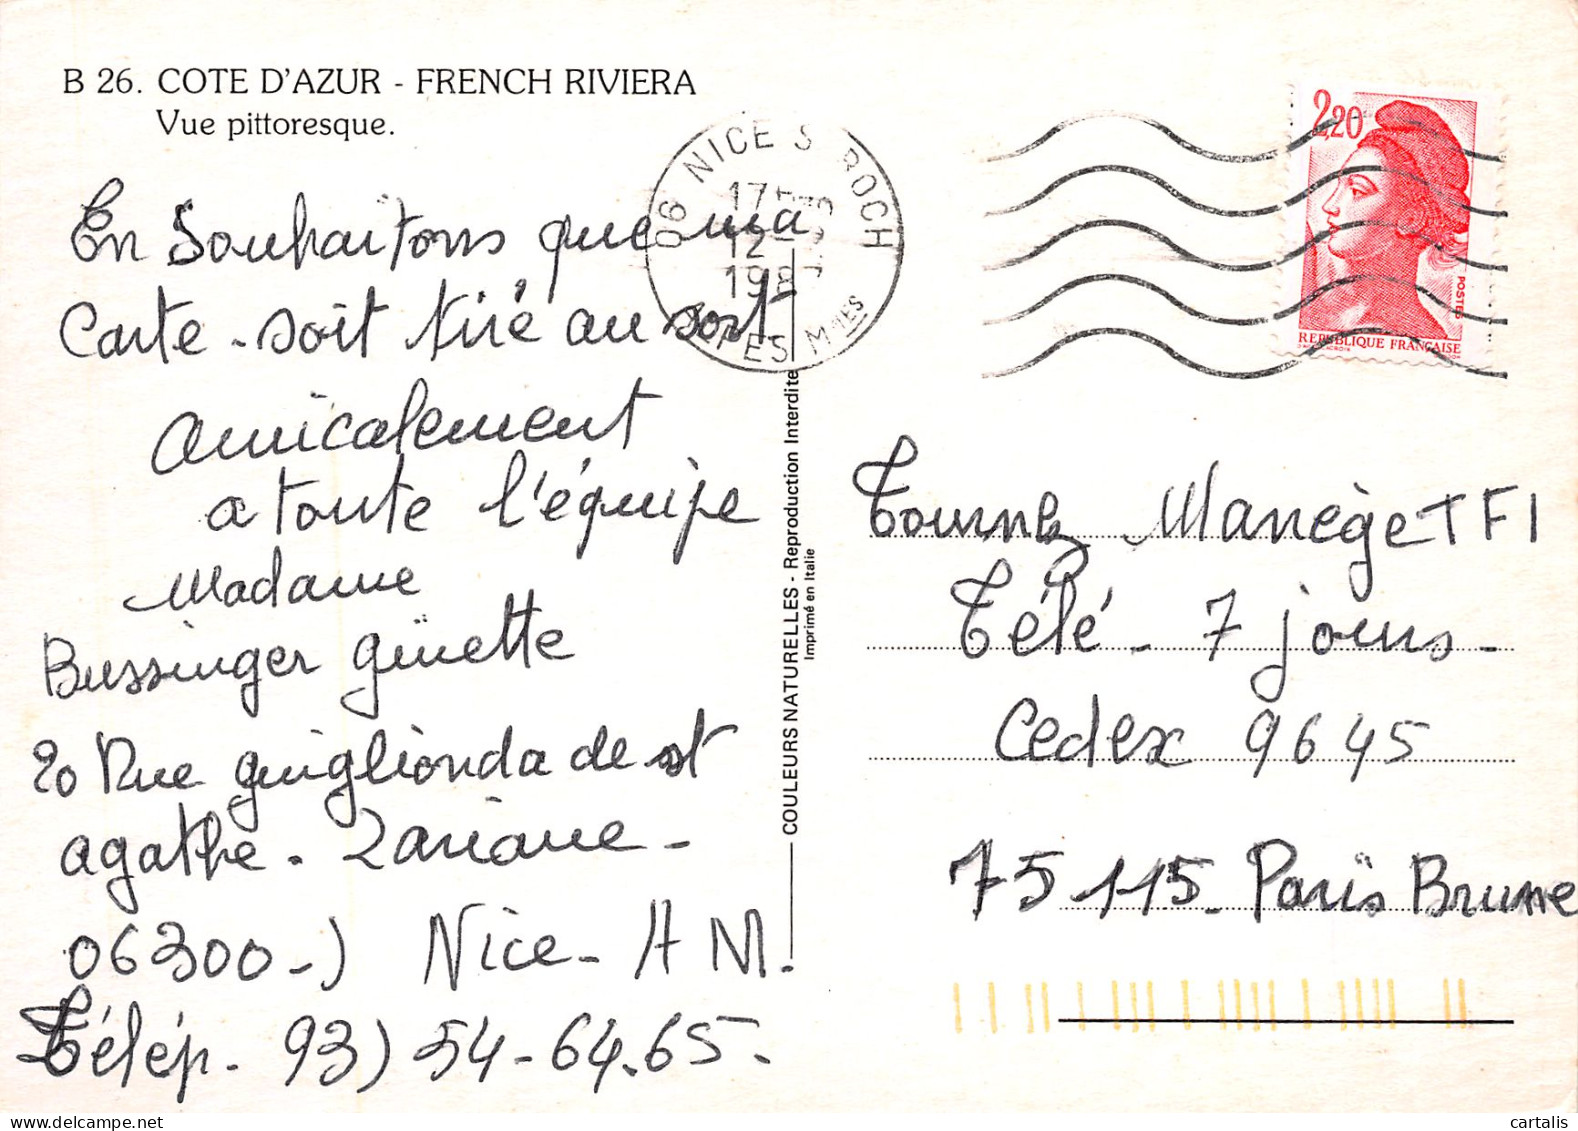 B 26. COTE D'AZUR - FRENCH RIVIERA
Vue pittoresque.
En Souhaitons que ma
Carte - soit tiré au sort
amicalement
a toute l'équipe
Madame
Bussinger ginette
20 Rue guiglionda de st
agathe - Lariane -
06300-) Nice - A M.
Télép. 93) 54-64.65-
06 NICE S ROCH
17
12
198
PES Mmes
COULEURS NATURELLES - Reproduction Interdite
Imprimé en Italie
2,20
POSTES
REPUBLIQUE FRANÇAISE
Tournez Manège TF1
Télé - 7 jours -
Cedex 9645
75-115- Paris Brune
cartalis